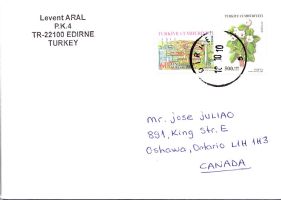 Levent ARAL
P.K.4
TR-22100 EDIRNE
TURKEY
TÜRKİYE CUMHURİYETİ
TÜRKİYE CUMHURİYETİ
mr. jose JULIAO
891, King Str. E
Oshawa, Ontario L1H 1H3
CANADA